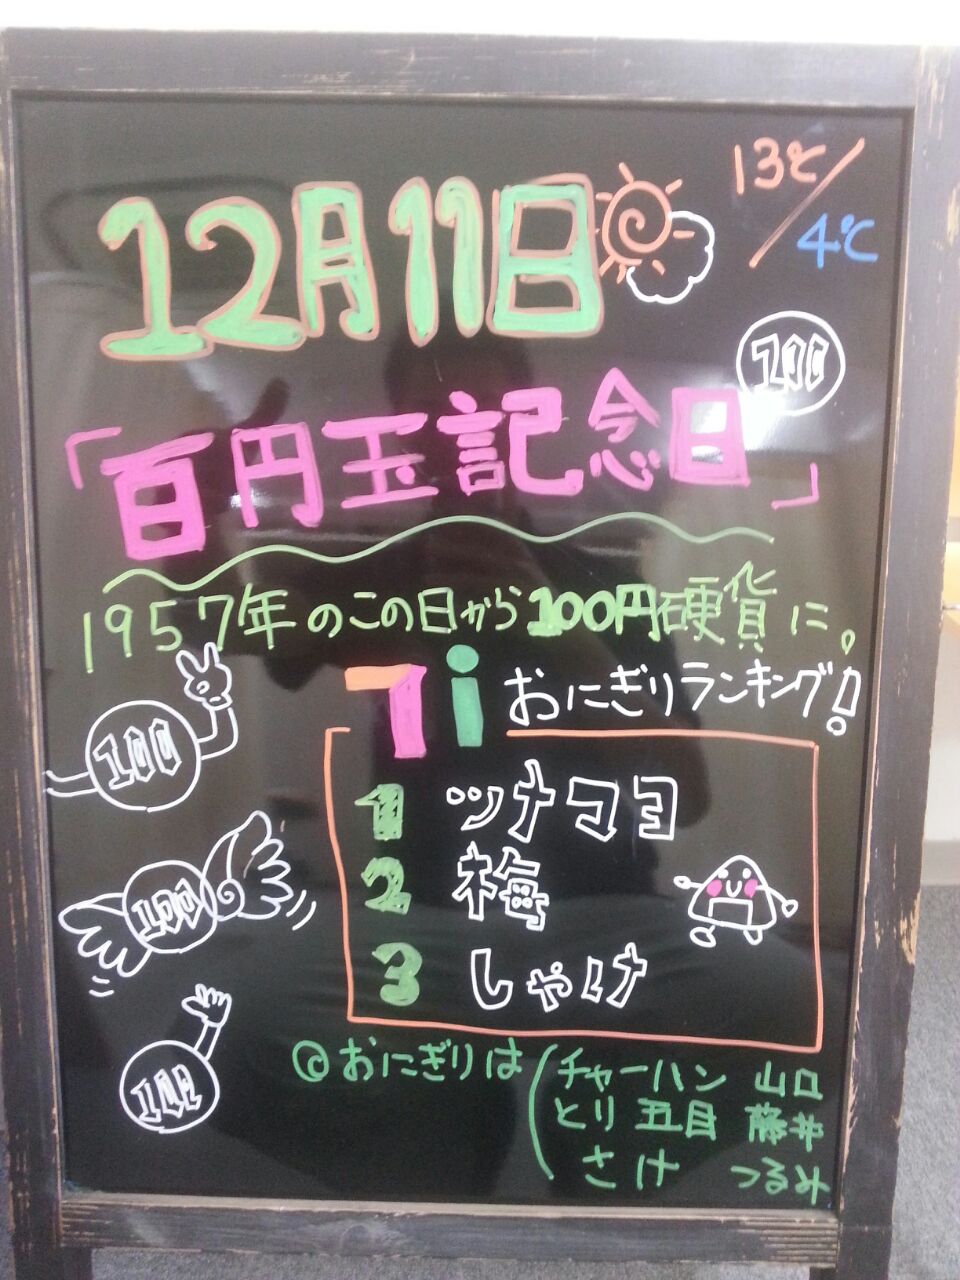 12月11日
13℃/4℃
100
「百円玉記念日」
1957年のこの日から100円硬貨に。
7i おにぎりランキング!
100
1 ツナマヨ
2 梅
100
3 しゃけ
100
◎おにぎりは(チャーハン 山口
とり五目 藤井
さけ つるみ